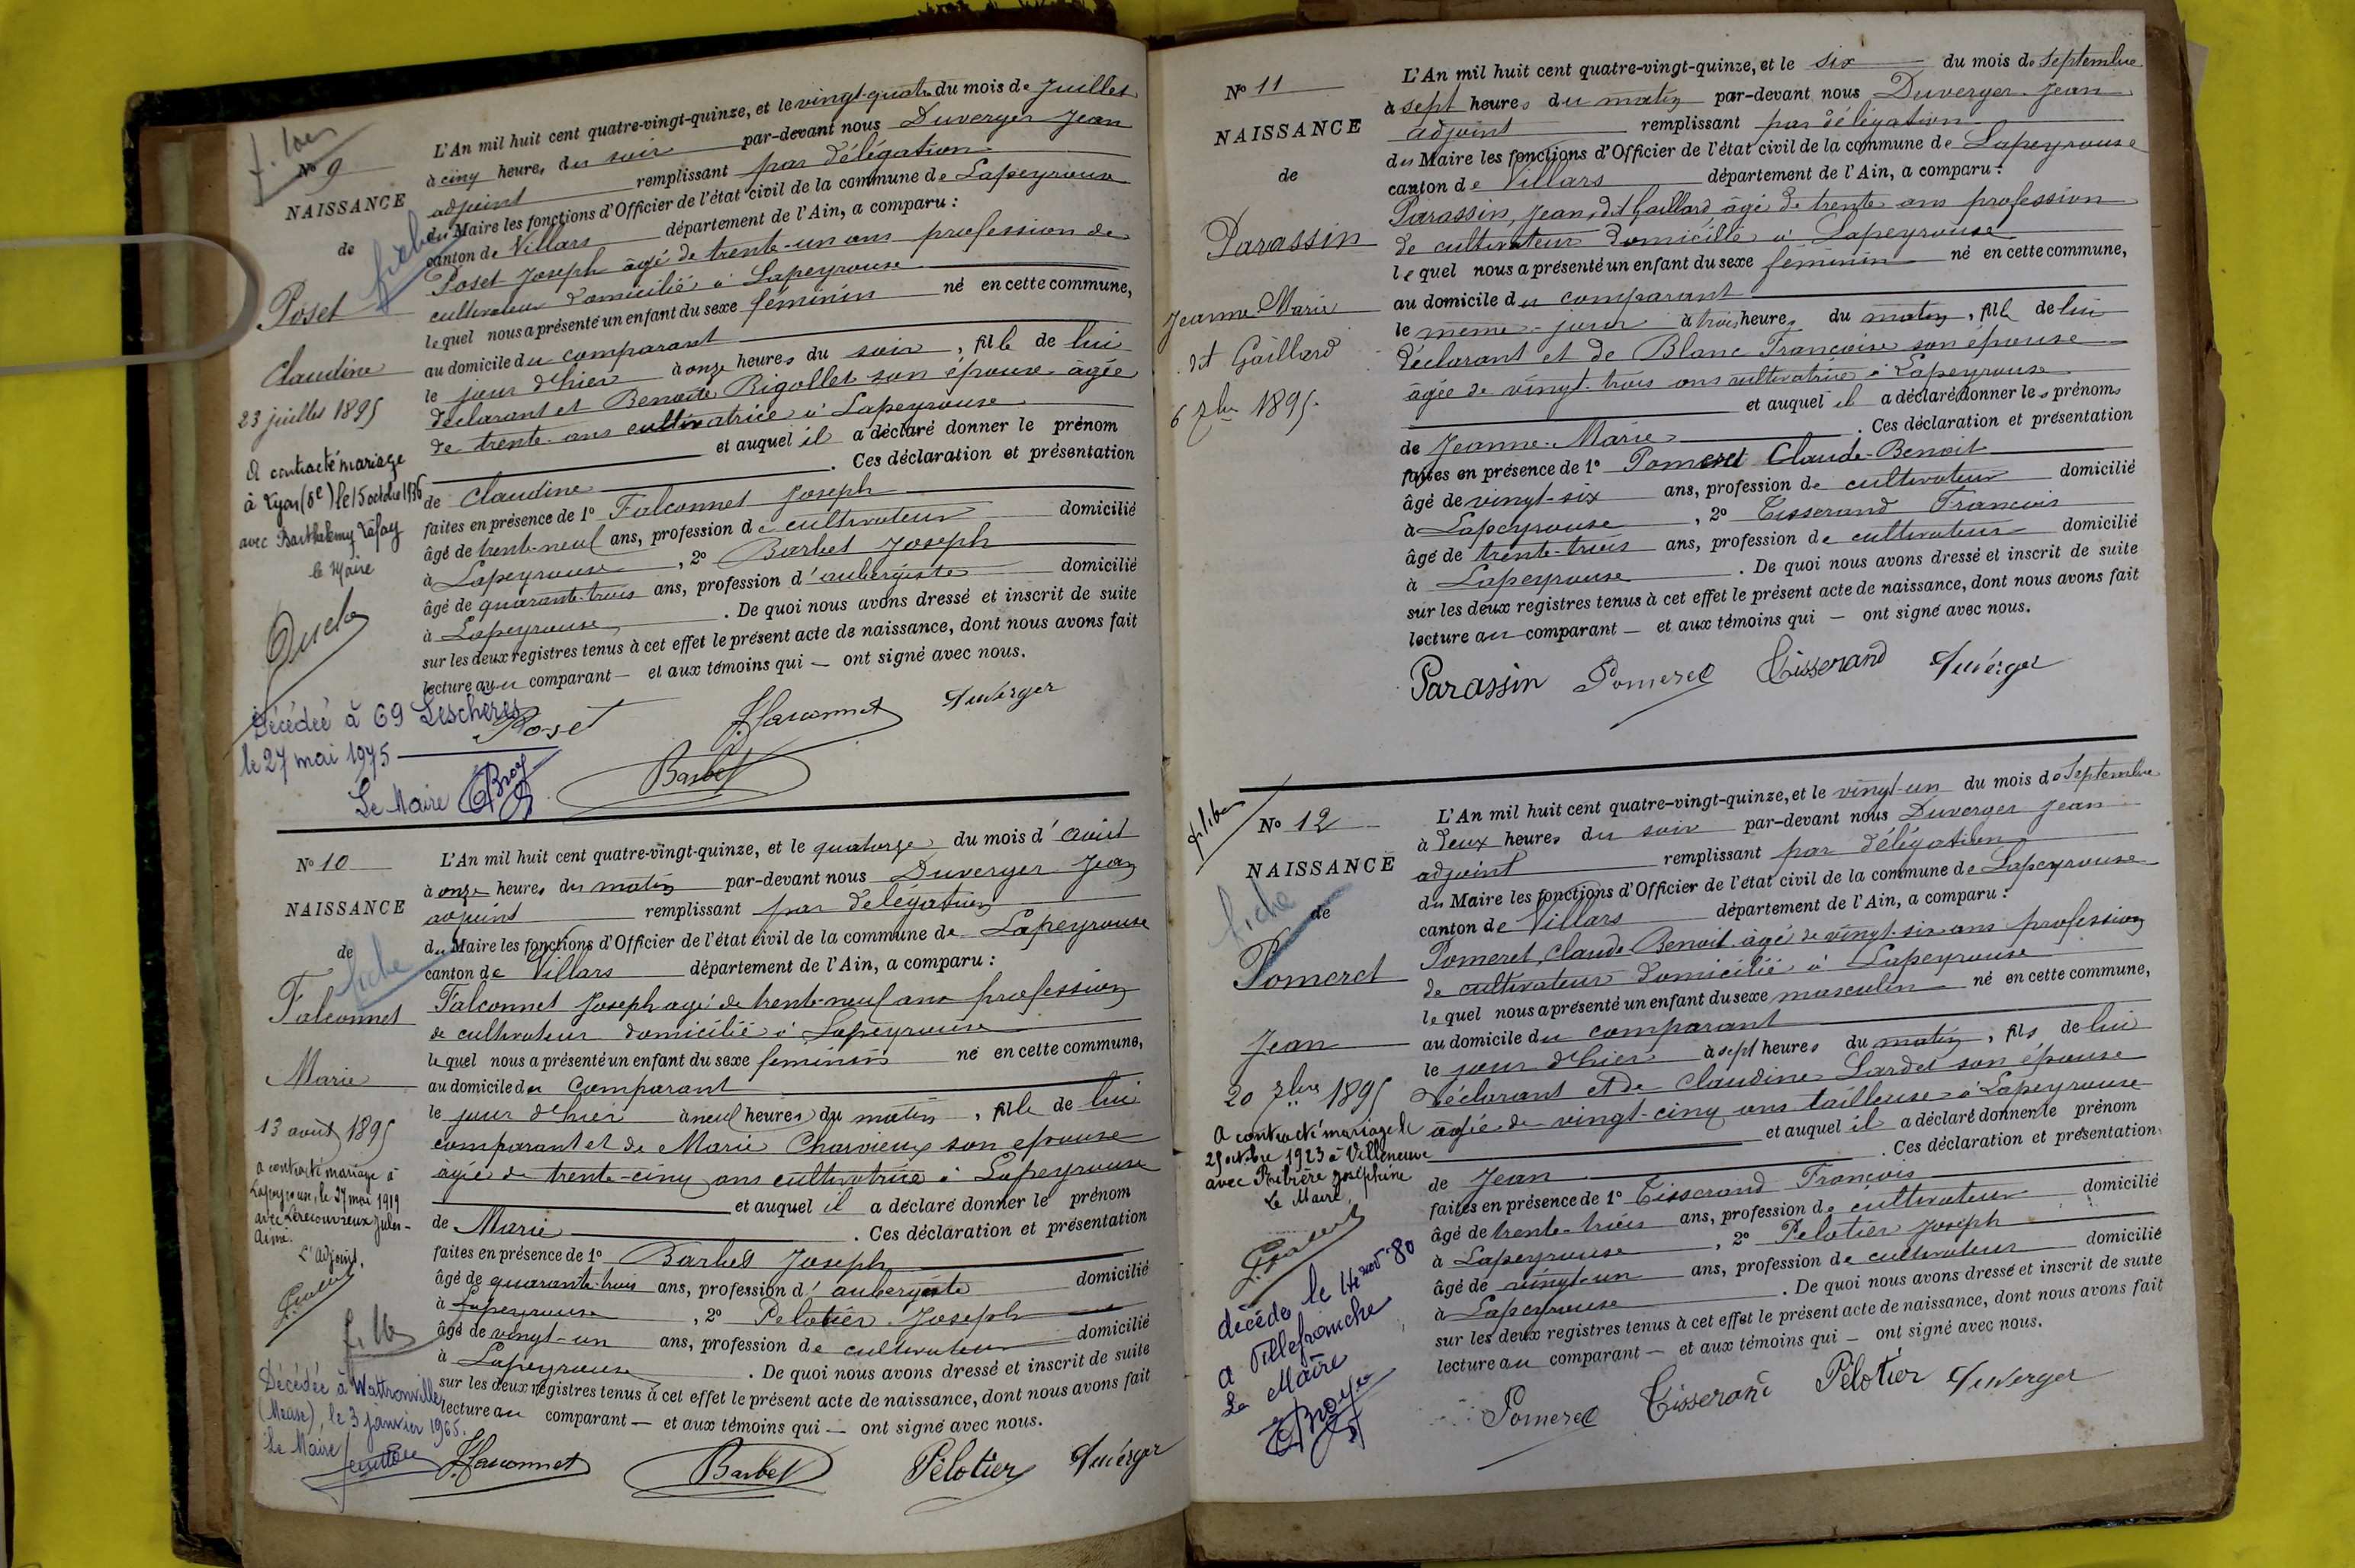 Nº 9
NAISSANCE
de
fiche
Poset
Claudine
23 juillet 1895
A contracté mariage
à Lyon (5e) le 15 octobre 1936
avec Barthelemy Lafay
le Maire
Décédée à 69 Lescheres
le 27 mai 1975
Le Maire
L'An mil huit cent quatre-vingt-quinze, et le vingt-quatre du mois de Juillet
à cinq heures du soir par-devant nous Duverger Jean
adjoint remplissant par délégation
du Maire les fonctions d'Officier de l'état civil de la commune de Lapeyrouse
canton de Villars département de l'Ain, a comparu :
Poset Joseph âgé de trente-un ans profession de
cultivateur domicilié à Lapeyrouse
lequel nous a présenté un enfant du sexe féminin né en cette commune,
au domicile du comparant
le jour d'hier à onze heures du soir, fille de lui
déclarant et Benoite Rigollet son épouse âgée
de trente ans cultivatrice à Lapeyrouse
et auquel il a déclaré donner le prénom
de Claudine. Ces déclaration et présentation
faites en présence de 1º Falconnet Joseph
âgé de trente-neuf ans, profession de cultivateur domicilié
à Lapeyrouse, 2º Barbet Joseph
âgé de quarante-trois ans, profession d'aubergiste domicilié
à Lapeyrouse. De quoi nous avons dressé et inscrit de suite
sur les deux registres tenus à cet effet le présent acte de naissance, dont nous avons fait
lecture au comparant — et aux témoins qui — ont signé avec nous.
Poset JFalconnet Duverger
Barbet
Nº 10
NAISSANCE
de
fiche
Falconnet
Marie
13 août 1895
a contracté mariage à
Lapeyrouse, le 27 mai 1919
avec Lerecouvreux Jules-
Aimé.
L'Adjoint,
Décédée à Wattronville
(Meuse), le 3 janvier 1965.
Le Maire
L'An mil huit cent quatre-vingt-quinze, et le quatorze du mois d'août
à onze heures du matin par-devant nous Duverger Jean
adjoint remplissant par délégation
du Maire les fonctions d'Officier de l'état civil de la commune de Lapeyrouse
canton de Villars département de l'Ain, a comparu :
Falconnet Joseph agé de trente-neuf ans profession
de cultivateur domicilié à Lapeyrouse
lequel nous a présenté un enfant du sexe féminin né en cette commune,
au domicile du comparant
le jour d'hier à neuf heures du matin, fille de lui
comparant et de Marie Charvieux son epouse
âgée de trente-cinq ans cultivatrice à Lapeyrouse
et auquel il a déclaré donner le prénom
de Marie. Ces déclaration et présentation
faites en présence de 1º Barbet Joseph
âgé de quarante-trois ans, profession d'aubergiste domicilié
à Lapeyrouse, 2º Pelotier Joseph
âgé de vingt-un ans, profession de cultivateur domicilié
à Lapeyrouse. De quoi nous avons dressé et inscrit de suite
sur les deux registres tenus à cet effet le présent acte de naissance, dont nous avons fait
lecture au comparant — et aux témoins qui — ont signé avec nous.
JFalconnet Barbet Pélotier Duverger
Nº 11
NAISSANCE
de
Parassin
Jeanne-Marie
dit Gaillard
6 7bre 1895.
L'An mil huit cent quatre-vingt-quinze, et le six du mois de Septembre
à sept heures du matin par-devant nous Duverger Jean
adjoint remplissant par délégation
du Maire les fonctions d'Officier de l'état civil de la commune de Lapeyrouse
canton de Villars département de l'Ain, a comparu :
Parassin, Jean, dit Gaillard âgé de trente ans profession
de cultivateur domicilié à Lapeyrouse
lequel nous a présenté un enfant du sexe féminin né en cette commune,
au domicile du comparant
le même jour à trois heures du matin, fille de lui
déclarant et de Blanc Françoise son épouse
âgée de vingt-trois ans cultivatrice à Lapeyrouse
et auquel il a déclaré donner les prénoms
de Jeanne-Marie. Ces déclaration et présentation
faites en présence de 1º Pomeret Claude-Benoit
âgé de vingt-six ans, profession de cultivateur domicilié
à Lapeyrouse, 2º Tisserand Francois
âgé de trente-trois ans, profession de cultivateur domicilié
à Lapeyrouse. De quoi nous avons dressé et inscrit de suite
sur les deux registres tenus à cet effet le présent acte de naissance, dont nous avons fait
lecture au comparant — et aux témoins qui — ont signé avec nous.
Parassin Pomeret Tisserand Duverger
Nº 12
NAISSANCE
de
fiche
Pomeret
Jean
20 7bre 1895
A contracté mariage le
25 octobre 1923 à Villeneuve
avec Ribière Joséphine
Le Maire,
décédé le 14 nov. 80
a Villefranche
Le Maire
L'An mil huit cent quatre-vingt-quinze, et le vingt-un du mois de Septembre
à deux heures du soir par-devant nous Duverger Jean
adjoint remplissant par délégation
du Maire les fonctions d'Officier de l'état civil de la commune de Lapeyrouse
canton de Villars département de l'Ain, a comparu :
Pomeret, Claude Benoit âgé de vingt-six ans profession
de cultivateur domicilié à Lapeyrouse
lequel nous a présenté un enfant du sexe masculin né en cette commune,
au domicile du comparant
le jour d'hier à sept heures du matin, fils de lui
déclarant et de Claudine Lardet son épouse
agée de vingt-cinq ans tailleuse à Lapeyrouse
et auquel il a déclaré donner le prénom
de Jean. Ces déclaration et présentation
faites en présence de 1º Tisserand Francois
âgé de trente-trois ans, profession de cultivateur domicilié
à Lapeyrouse, 2º Pelotier Joseph
âgé de vingt-un ans, profession de cultivateur domicilié
à Lapeyrouse. De quoi nous avons dressé et inscrit de suite
sur les deux registres tenus à cet effet le présent acte de naissance, dont nous avons fait
lecture au comparant — et aux témoins qui — ont signé avec nous.
Pomeret Tisserand Pélotier Duverger